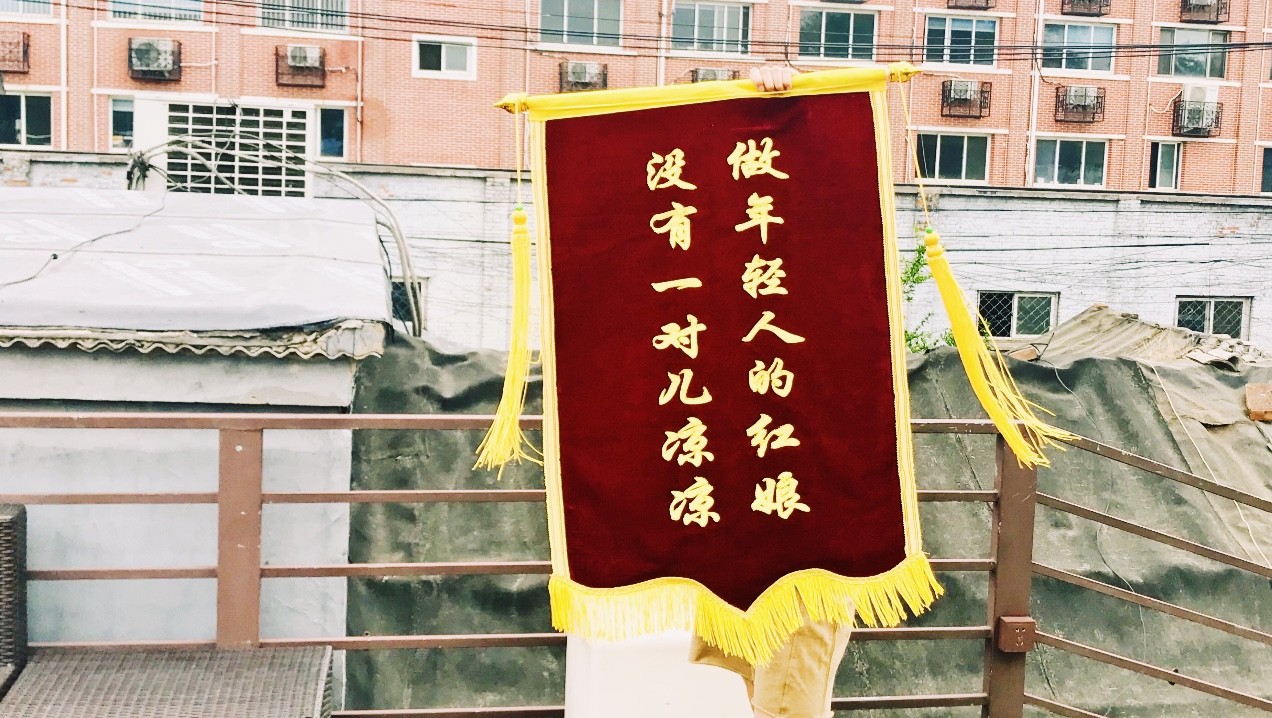 做年轻人的红娘
没有一对儿凉凉